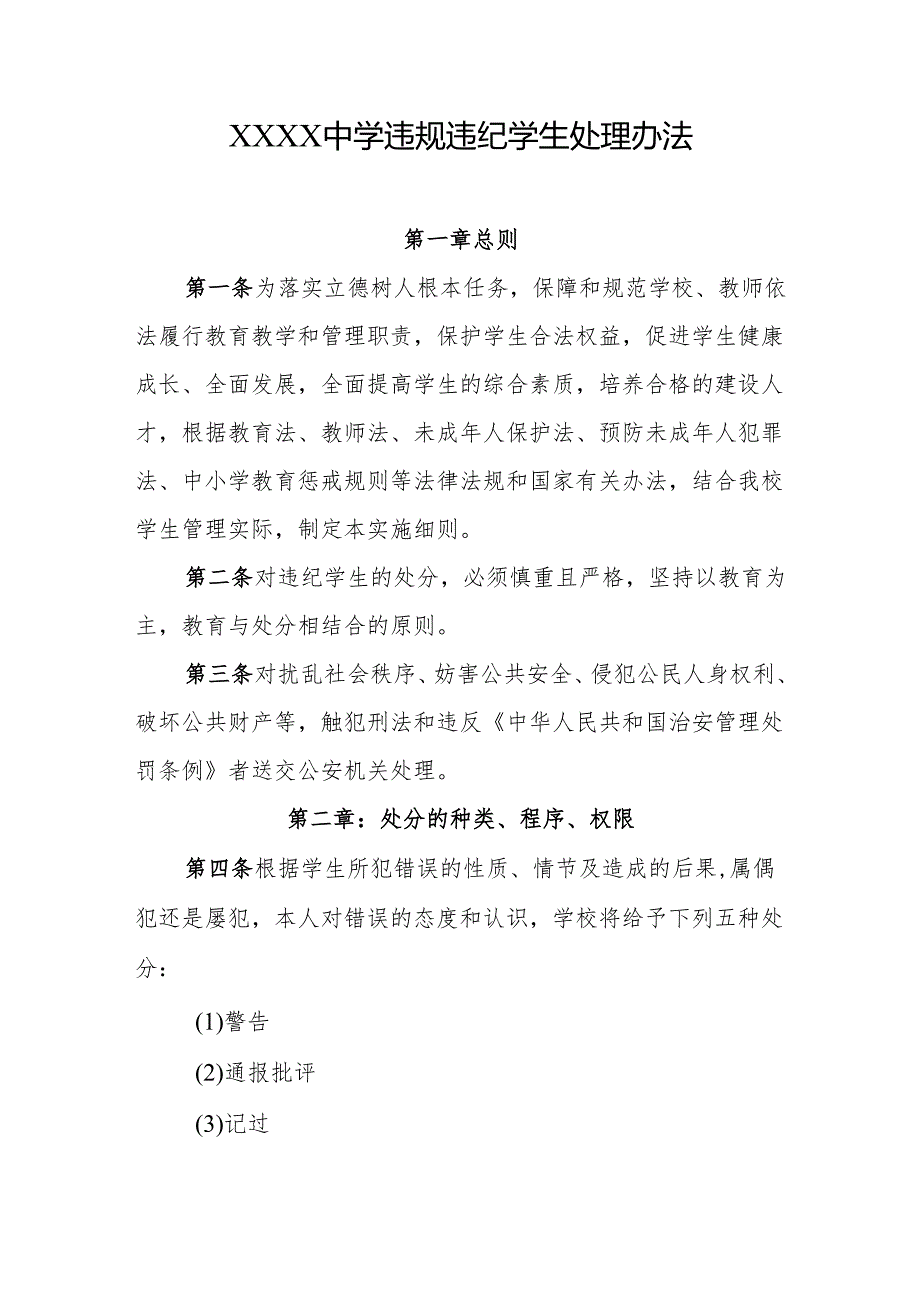 XXXX中学违规违纪学生处理办法
第一章总则
第一条为落实立德树人根本任务，保障和规范学校、教师依
法履行教育教学和管理职责，保护学生合法权益，促进学生健康
成长、全面发展，全面提高学生的综合素质，培养合格的建设人
才，根据教育法、教师法、未成年人保护法、预防未成年人犯罪
法、中小学教育惩戒规则等法律法规和国家有关办法，结合我校
学生管理实际，制定本实施细则。
第二条对违纪学生的处分，必须慎重且严格，坚持以教育为
主，教育与处分相结合的原则。
第三条对扰乱社会秩序、妨害公共安全、侵犯公民人身权利、
破坏公共财产等，触犯刑法和违反《中华人民共和国治安管理处
罚条例》者送交公安机关处理。
第二章：处分的种类、程序、权限
第四条根据学生所犯错误的性质、情节及造成的后果,属偶
犯还是屡犯，本人对错误的态度和认识，学校将给予下列五种处
分：
(1)警告
(2)通报批评
(3)记过